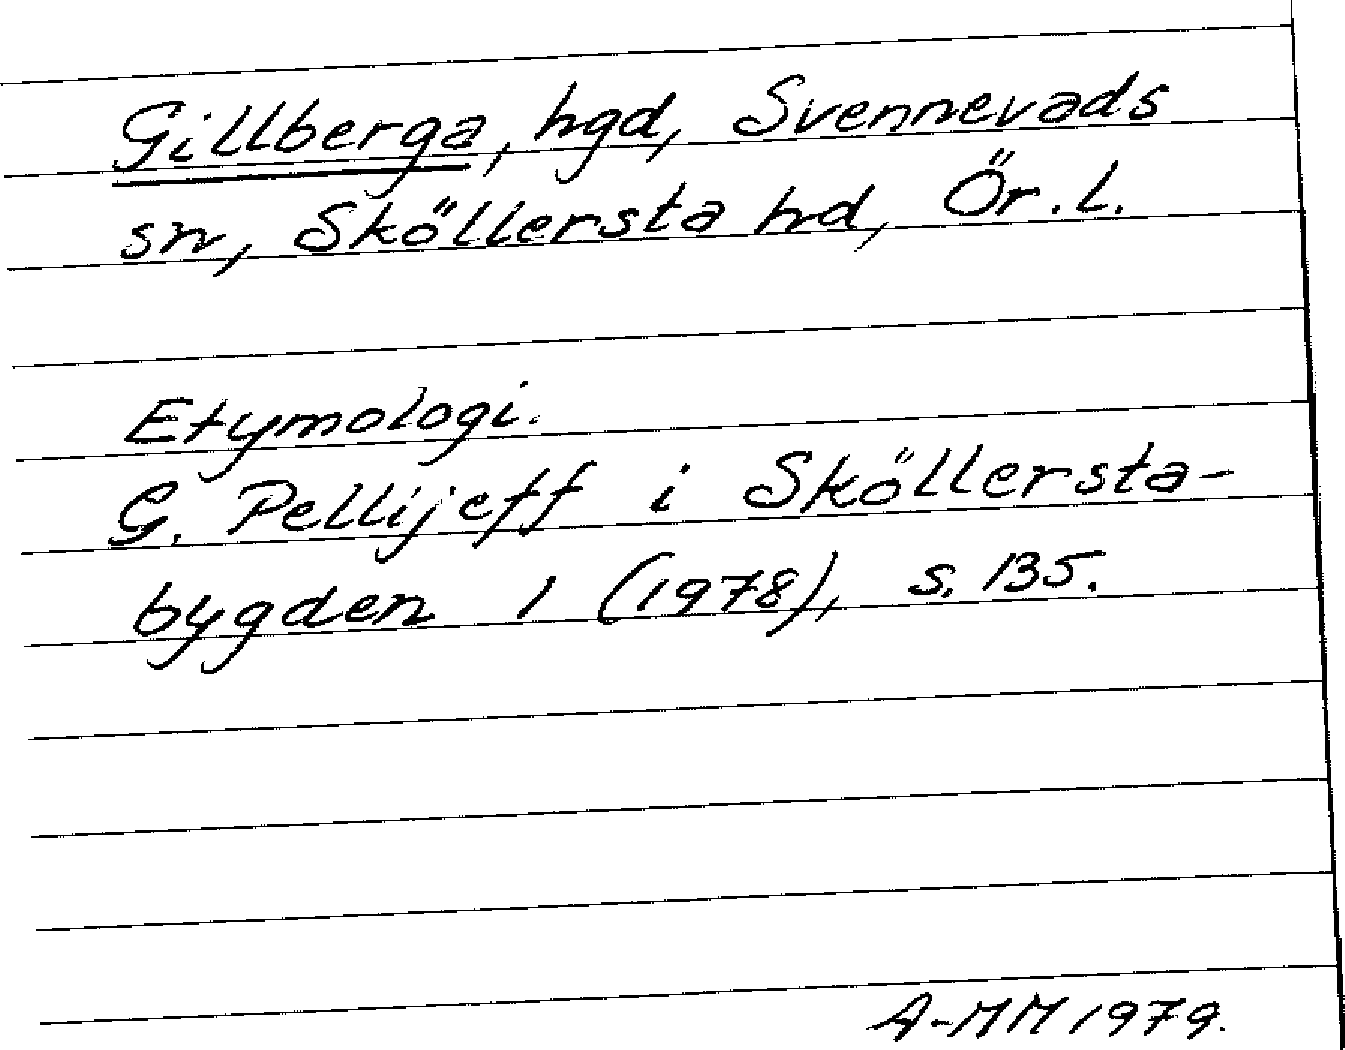 Gillberga, hgd, Svennevads
sn, Sköllersta hd, Ör.l.
Etymologi.
G. Pellijeff i Sköllersta-
bygden 1 (1978), s. 135.
A-MM 1979.